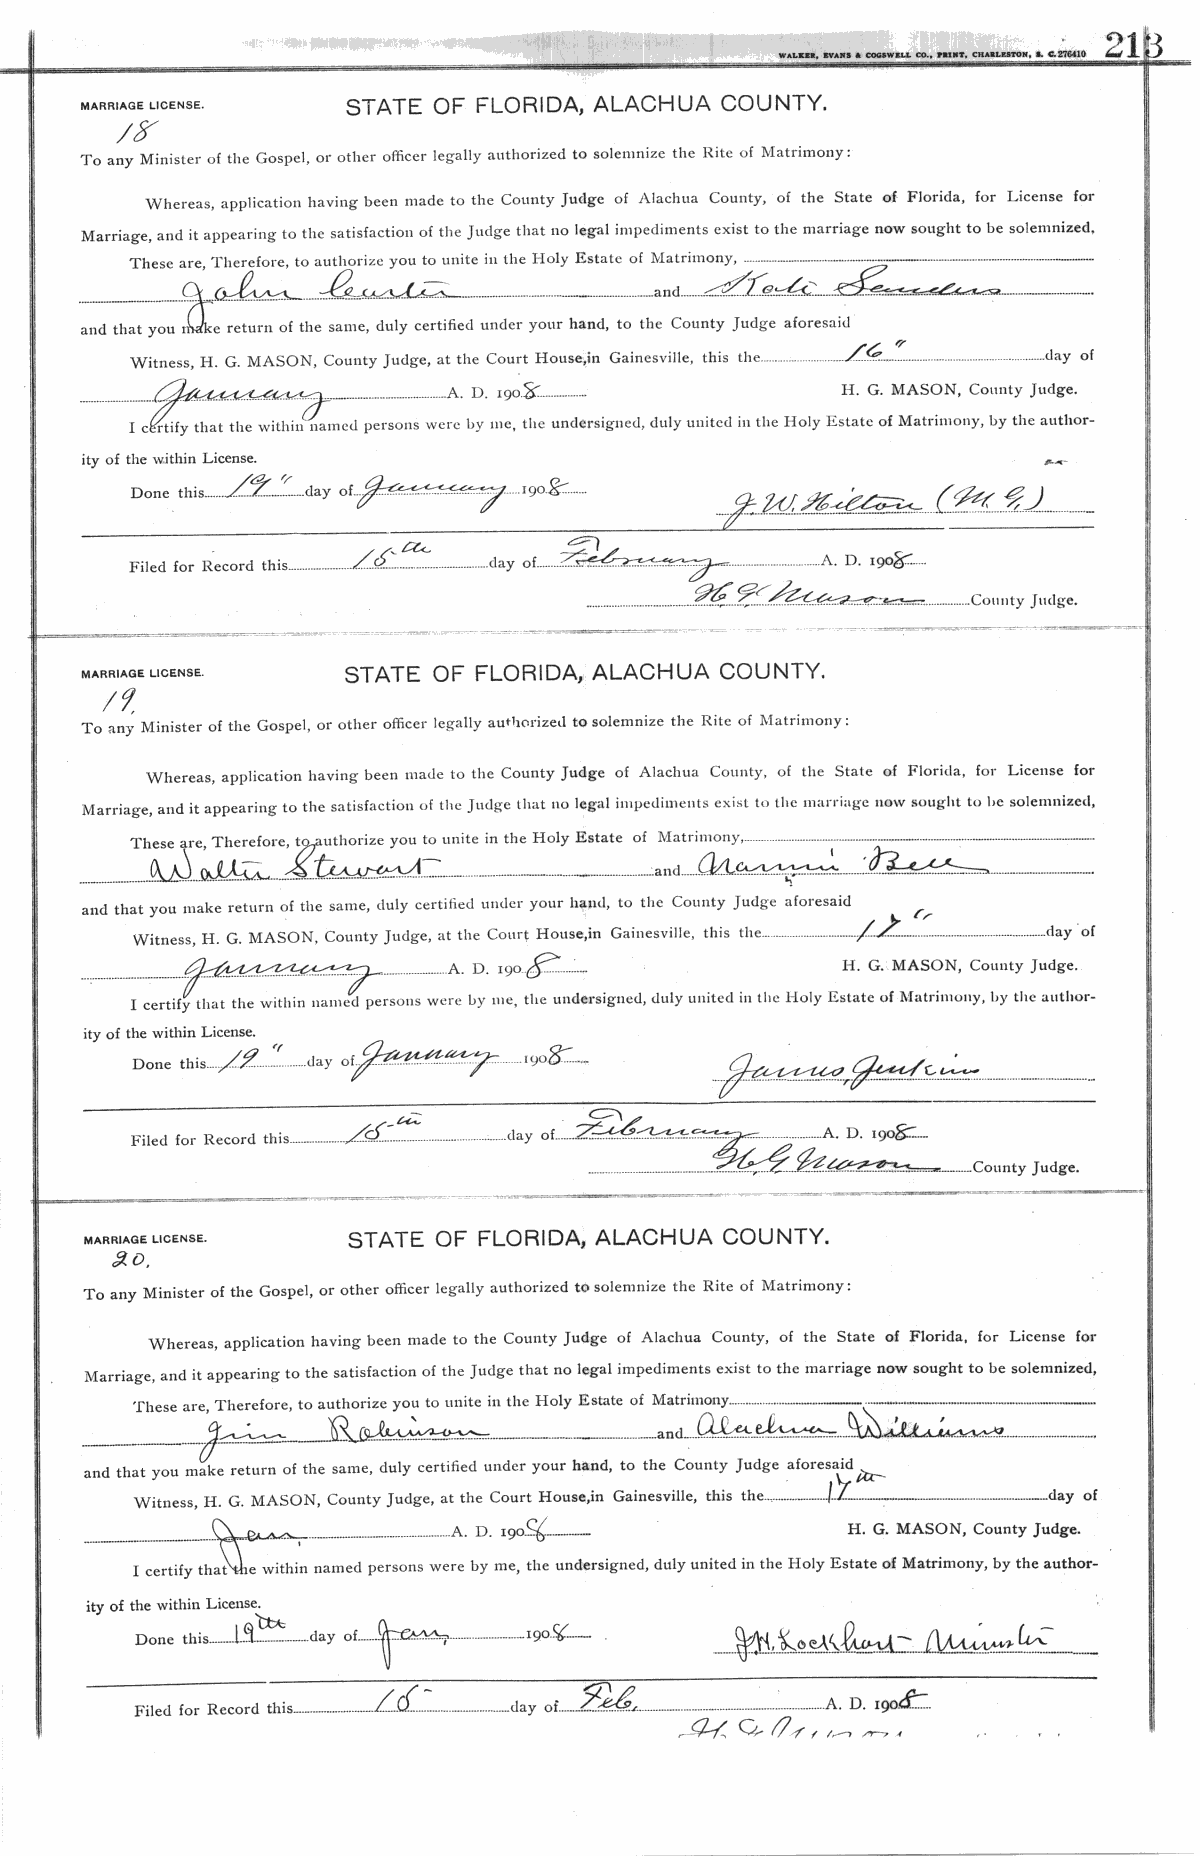 WALKER, EVANS & COGSWELL CO., PRINT, CHARLESTON, S. C. 276410 213
MARRIAGE LICENSE. STATE OF FLORIDA, ALACHUA COUNTY.
18
To any Minister of the Gospel, or other officer legally authorized to solemnize the Rite of Matrimony:
Whereas, application having been made to the County Judge of Alachua County, of the State of Florida, for License for
Marriage, and it appearing to the satisfaction of the Judge that no legal impediments exist to the marriage now sought to be solemnized,
These are, Therefore, to authorize you to unite in the Holy Estate of Matrimony,
John Carter and Kate Sanders
and that you make return of the same, duly certified under your hand, to the County Judge aforesaid
Witness, H. G. MASON, County Judge, at the Court House,in Gainesville, this the 16" day of
January A. D. 1908 H. G. MASON, County Judge.
I certify that the within named persons were by me, the undersigned, duly united in the Holy Estate of Matrimony, by the author-
ity of the within License.
Done this 19" day of January 1908
J. W. Hilton (M. G.)
Filed for Record this 15th day of February A. D. 1908
H. G. Mason County Judge.
MARRIAGE LICENSE. STATE OF FLORIDA, ALACHUA COUNTY.
19.
To any Minister of the Gospel, or other officer legally authorized to solemnize the Rite of Matrimony:
Whereas, application having been made to the County Judge of Alachua County, of the State of Florida, for License for
Marriage, and it appearing to the satisfaction of the Judge that no legal impediments exist to the marriage now sought to be solemnized,
These are, Therefore, to authorize you to unite in the Holy Estate of Matrimony,
Walter Stewart and Nannie Bell
and that you make return of the same, duly certified under your hand, to the County Judge aforesaid
Witness, H. G. MASON, County Judge, at the Court House,in Gainesville, this the 17" day of
January A. D. 1908 H. G. MASON, County Judge.
I certify that the within named persons were by me, the undersigned, duly united in the Holy Estate of Matrimony, by the author-
ity of the within License.
Done this 19" day of January 1908
James Jenkins
Filed for Record this 15th day of February A. D. 1908
H. G. Mason County Judge.
MARRIAGE LICENSE. STATE OF FLORIDA, ALACHUA COUNTY.
20.
To any Minister of the Gospel, or other officer legally authorized to solemnize the Rite of Matrimony:
Whereas, application having been made to the County Judge of Alachua County, of the State of Florida, for License for
Marriage, and it appearing to the satisfaction of the Judge that no legal impediments exist to the marriage now sought to be solemnized,
These are, Therefore, to authorize you to unite in the Holy Estate of Matrimony
Jim Robinson and Alachua Williams
and that you make return of the same, duly certified under your hand, to the County Judge aforesaid
Witness, H. G. MASON, County Judge, at the Court House,in Gainesville, this the 17th day of
Jan, A. D. 1908 H. G. MASON, County Judge.
I certify that the within named persons were by me, the undersigned, duly united in the Holy Estate of Matrimony, by the author-
ity of the within License.
Done this 19th day of Jan, 1908
J. H. Lockhart Minister
Filed for Record this 15 day of Feb. A. D. 1908
H. G. Mason